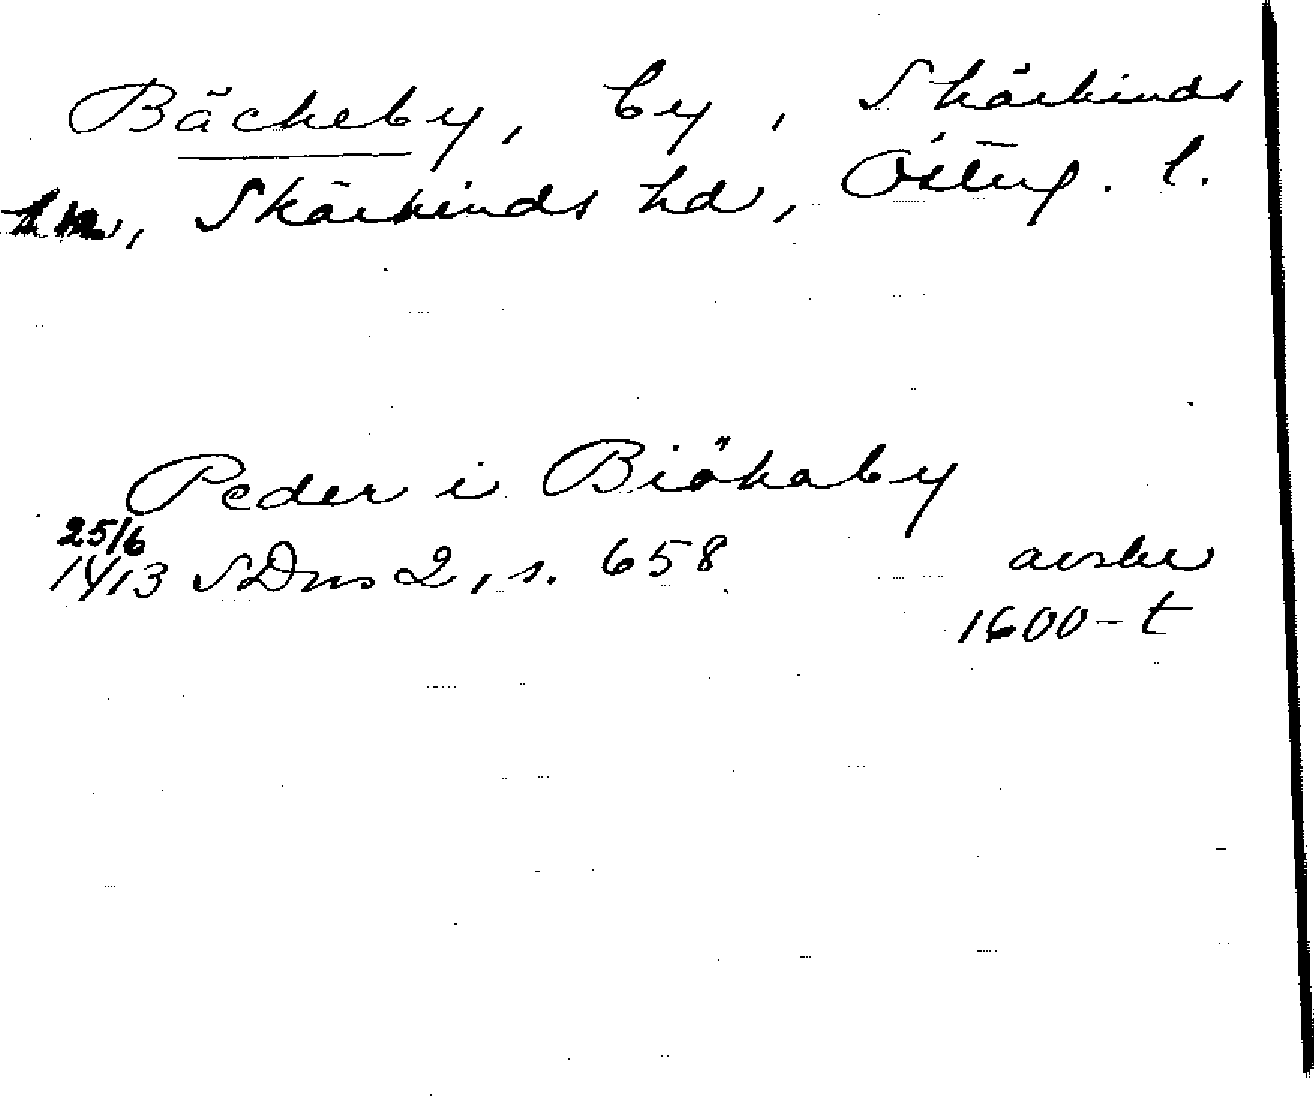 Bäckeby, by, Skärkinds
sn, Skärkinds hd, Österg. l.
Peder i Biökaby
25/6
1413 SDns 2, s. 658 avskr
1600-t